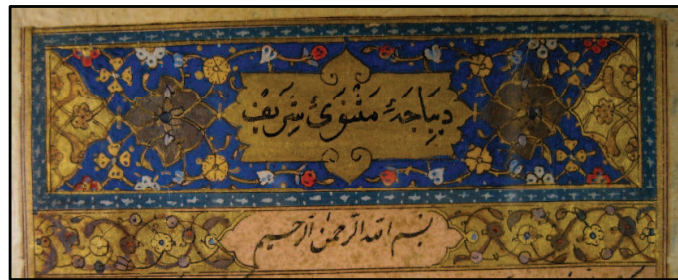 دیباجهٔ مثنوی شریف
بسم الله الرحمن الرحیم